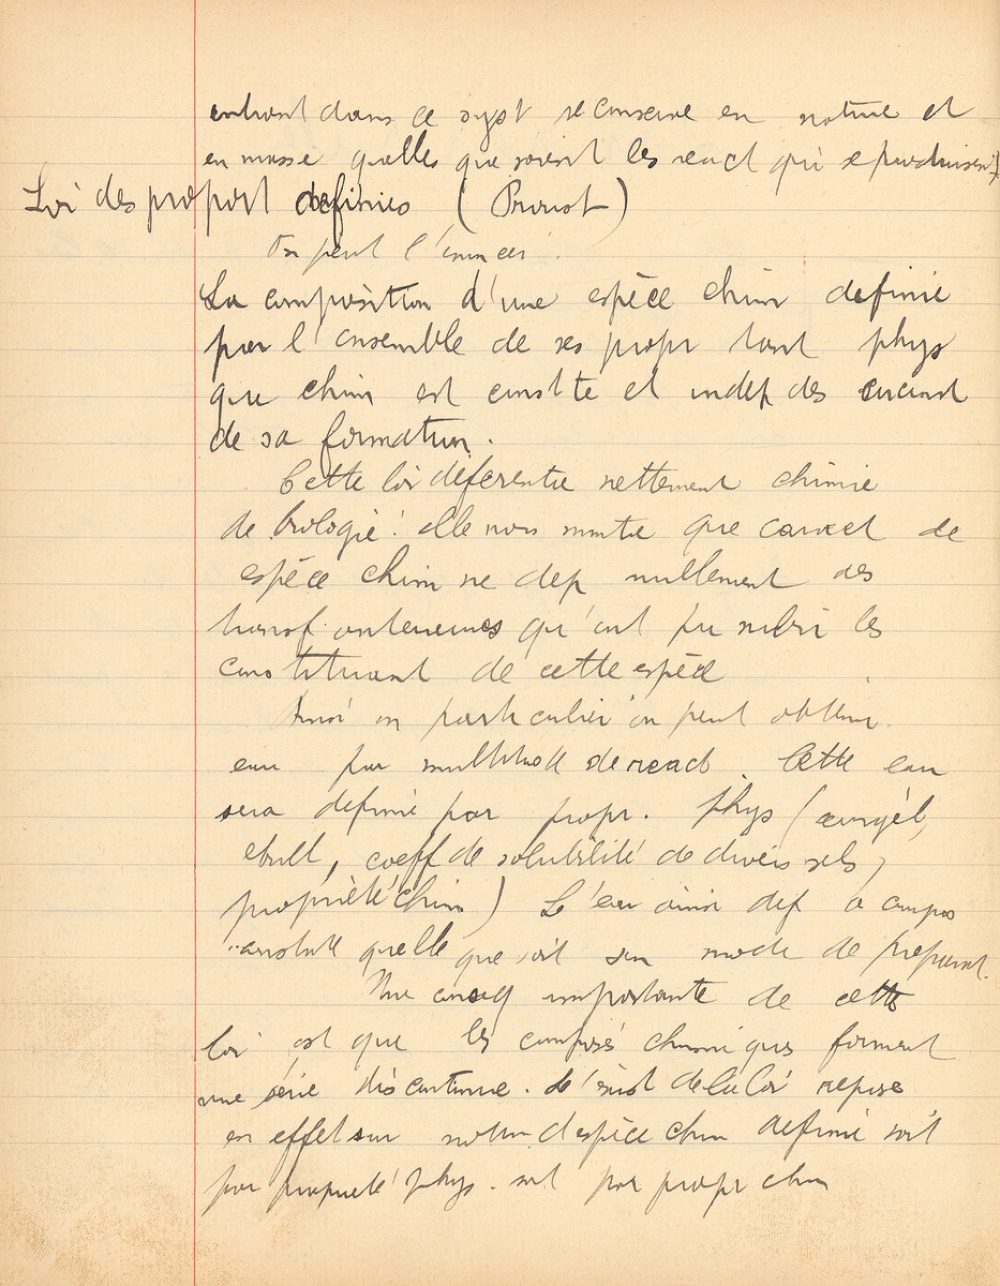 entrant dans ce syst se conserve en nature et
en masse quelles que soient les react qui se produisent
Loi des proport définies (Proust)
On peut l'énoncer :
La composition d'une espèce chim definie
par l'ensemble de ses propr tant phys
que chim est constte et indep des circonst
de sa formation.
Cette loi deferentie nettement chimie
de biologie : elle nous montre que caract de
espèce chim ne dep nullement des
transf. anterieures qu'ont pu subir les
constituant de cette espèce
Ainsi en particulier on peut obtenir
eau par multitude de react. Cette eau
sera definie par propr. phys (congél,
ebull, coeff de solubilité de divers sels,
propriété chim) L'eau ainsi def a compos
constante quelle que soit son mode de preparat.
Une conseq importante de cette
loi est que les composés chimiques forment
une série discontinue. L'énoncé de la loi repose
en effet sur notion d'espèce chim definie soit
par propriété phys. soit par propr chim